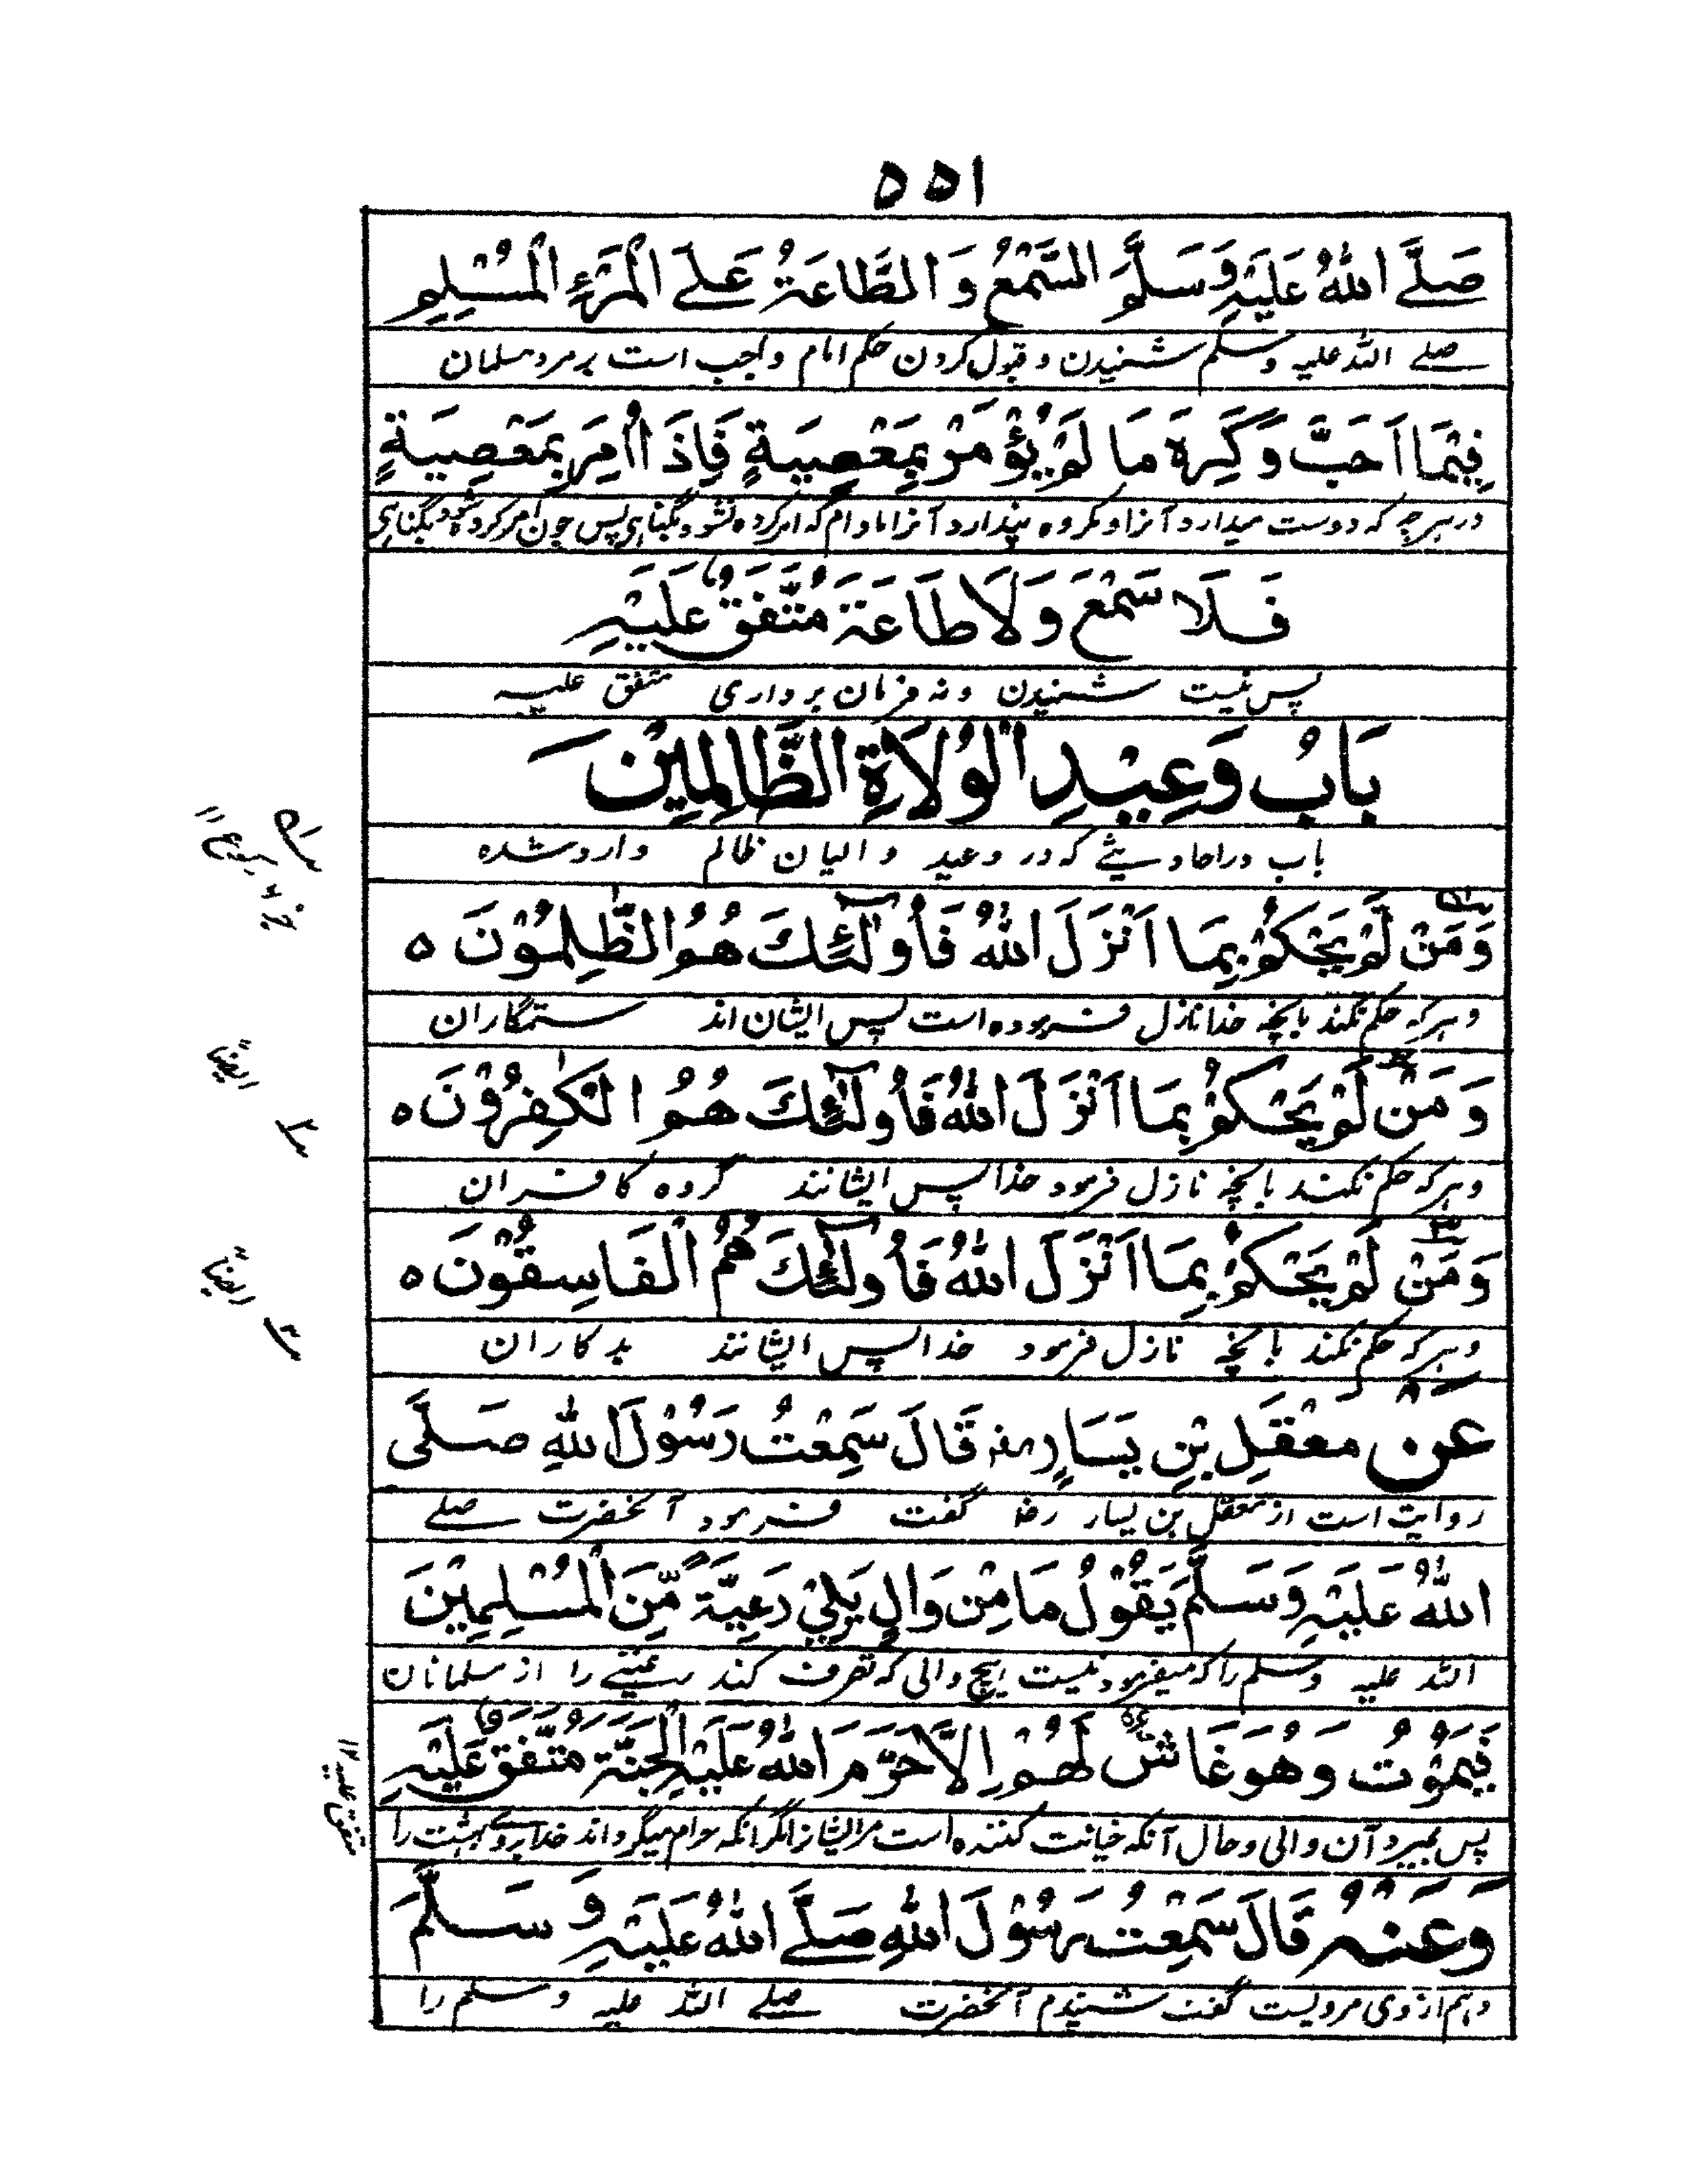 ۵۵۱
صَلَّے اللّٰهُ عَلَيْهِ وَسَلَّمَ السَّمْعُ وَ الطَّاعَةُ عَلَے الْمَرْءِ الْمُسْلِمِ
صلے اللہ علیہ وسلم شنیدن و قبول کردن حکم امام واجب است بر مرد مسلمان
فِيْمَا اَحَبَّ وَكَرِهَ مَا لَمْ يُؤْمَرْ بِمَعْصِيَةٍ فَاِذَا اُمِرَ بِمَعْصِيَةٍ
در ہر چہ کہ دوست میدارد آنرا و مکروہ پندارد آنرا مادام کہ امر کردہ نشود بگناہی پس چون امر کردہ شود بگناہی
فَلَا سَمْعَ وَلَا طَاعَةَ مُتَّفَقٌ عَلَيْهِ
پس نیست شنیدن و نہ فرمان برداری متفق علیہ
بَابُ وَعِيْدِ الْوُلَاةِ الظَّالِمِيْنَ
باب در احادیثے کہ در وعید والیان ظالم وارد شدہ
وَمَنْ لَّمْ يَحْكُمْ بِمَا اَنْزَلَ اللّٰهُ فَاُولٰٓئِكَ هُمُ الظّٰلِمُوْنَ ٥
و ہر کہ حکم نکند بانچہ خدا نازل فرمودہ است پس ایشان اند ستمگاران
وَمَنْ لَّمْ يَحْكُمْ بِمَا اَنْزَلَ اللّٰهُ فَاُولٰٓئِكَ هُمُ الْكٰفِرُوْنَ ٥
ایضاً
و ہر کہ حکم نکند بانچہ نازل فرمود خدا پس ایشانند گروہ کافران
وَمَنْ لَّمْ يَحْكُمْ بِمَا اَنْزَلَ اللّٰهُ فَاُولٰٓئِكَ هُمُ الْفَاسِقُوْنَ ٥
ایضاً
و ہر کہ حکم نکند بانچہ نازل فرمود خدا پس ایشانند بدکاران
عَنْ مَعْقَلِ بْنِ يَسَارٍ رض قَالَ سَمِعْتُ رَسُوْلَ اللّٰهِ صَلَّى
روایت است از معقل بن یسار رض گفت فرمود آنحضرت صلے
اللّٰهُ عَلَيْهِ وَسَلَّمَ يَقُوْلُ مَا مِنْ وَالٍ يَلِيْ رَعِيَّةً مِّنَ الْمُسْلِمِيْنَ
اللہ علیہ وسلم را کہ میفرمود نیست ہیچ والی کہ تصرف کند رعیتے را از مسلمانان
فَيَمُوْتُ وَهُوَ غَاشٌّ لَهُمْ اِلَّا حَرَّمَ اللّٰهُ عَلَيْهِ الْجَنَّةَ مُتَّفَقٌ عَلَيْهِ
متفق علیہ ۱۲
پس بمیرد آن والی و حال آنکہ خیانت کنندہ است مر ایشانرا مگر آنکہ حرام میگرداند خدا بروے بہشت را
وَعَنْهُ قَالَ سَمِعْتُ رَسُوْلَ اللّٰهِ صَلَّے اللّٰهُ عَلَيْهِ وَسَلَّمَ
وہم از وی مرویست گفت شنیدم آنحضرت صلے اللہ علیہ وسلم را